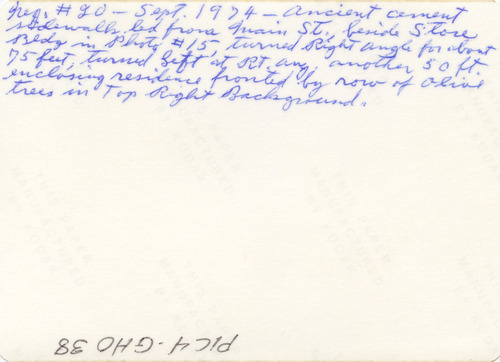 Neg. # 20 - Sept. 1974 - Ancient cement
sidewalk led from Main St., beside Store
Bldg in Photo #15, turned Right angle for about
75 feet, turned Left at Rt. ang. another 50 ft.
enclosing residence fronted by row of olive
trees in Top Right Background.
PIC4-GHO 38